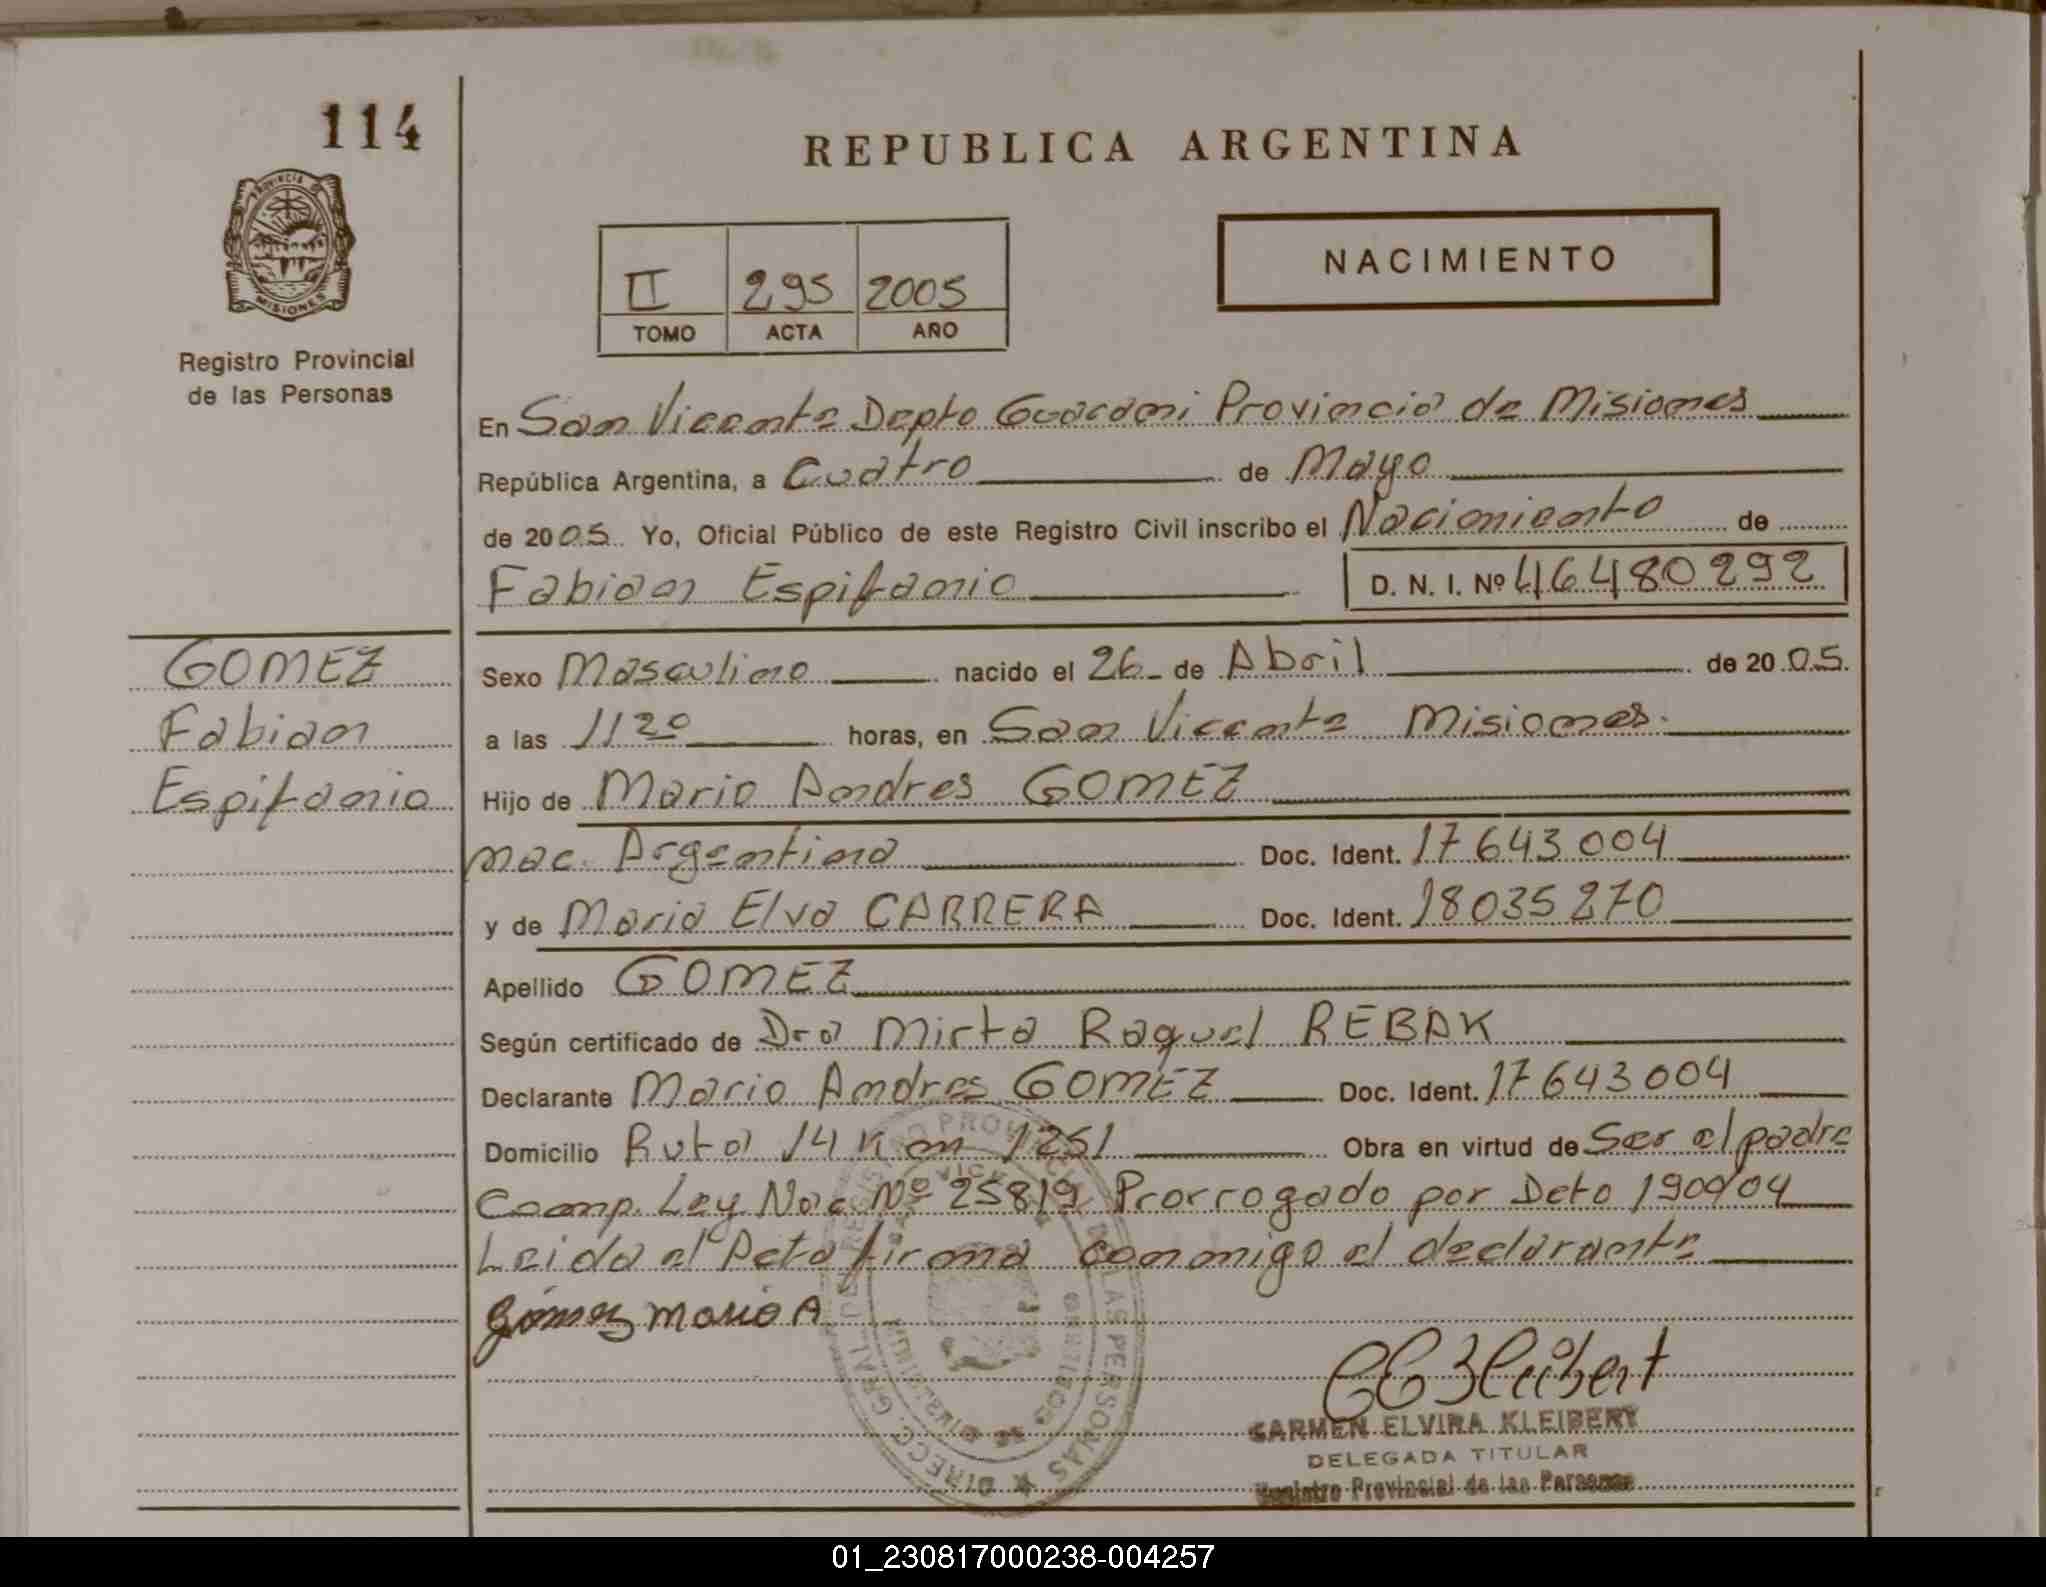 114
REPUBLICA ARGENTINA
PROVINCIA DE
MISIONES
Registro Provincial
de las Personas
NACIMIENTO
II 295 2005
TOMO ACTA AÑO
En San Vicente Depto Guarani Provincia de Misiones
República Argentina, a Cuatro de Mayo
de 2005 Yo, Oficial Público de este Registro Civil inscribo el Nacimiento de
Fabian Espifanio D. N. I. Nº 46480292
GOMEZ
Fabian
Espifanio
Sexo Masculino nacido el 26 de Abril de 2005.
a las 11 20 horas, en San Vicente Misiones.
Hijo de Mario Andres GOMEZ
nac. Argentina Doc. Ident. 17643004
y de Maria Elva CARRERA Doc. Ident. 18035270
Apellido GOMEZ
Según certificado de Dra Mirta Raquel REBAK
Declarante Mario Andres GOMEZ Doc. Ident. 17643004
Domicilio Ruta 14 Km 1251 Obra en virtud de Ser el padre
Comp. Ley Nac Nº 25819 Prorrogado por Dcto 1900/04
Leida el Acta firma conmigo el declarante
Gómez Mario A
CARMEN ELVIRA KLEIBERT
DELEGADA TITULAR
Registro Provincial de las Personas
01_230817000238-004257